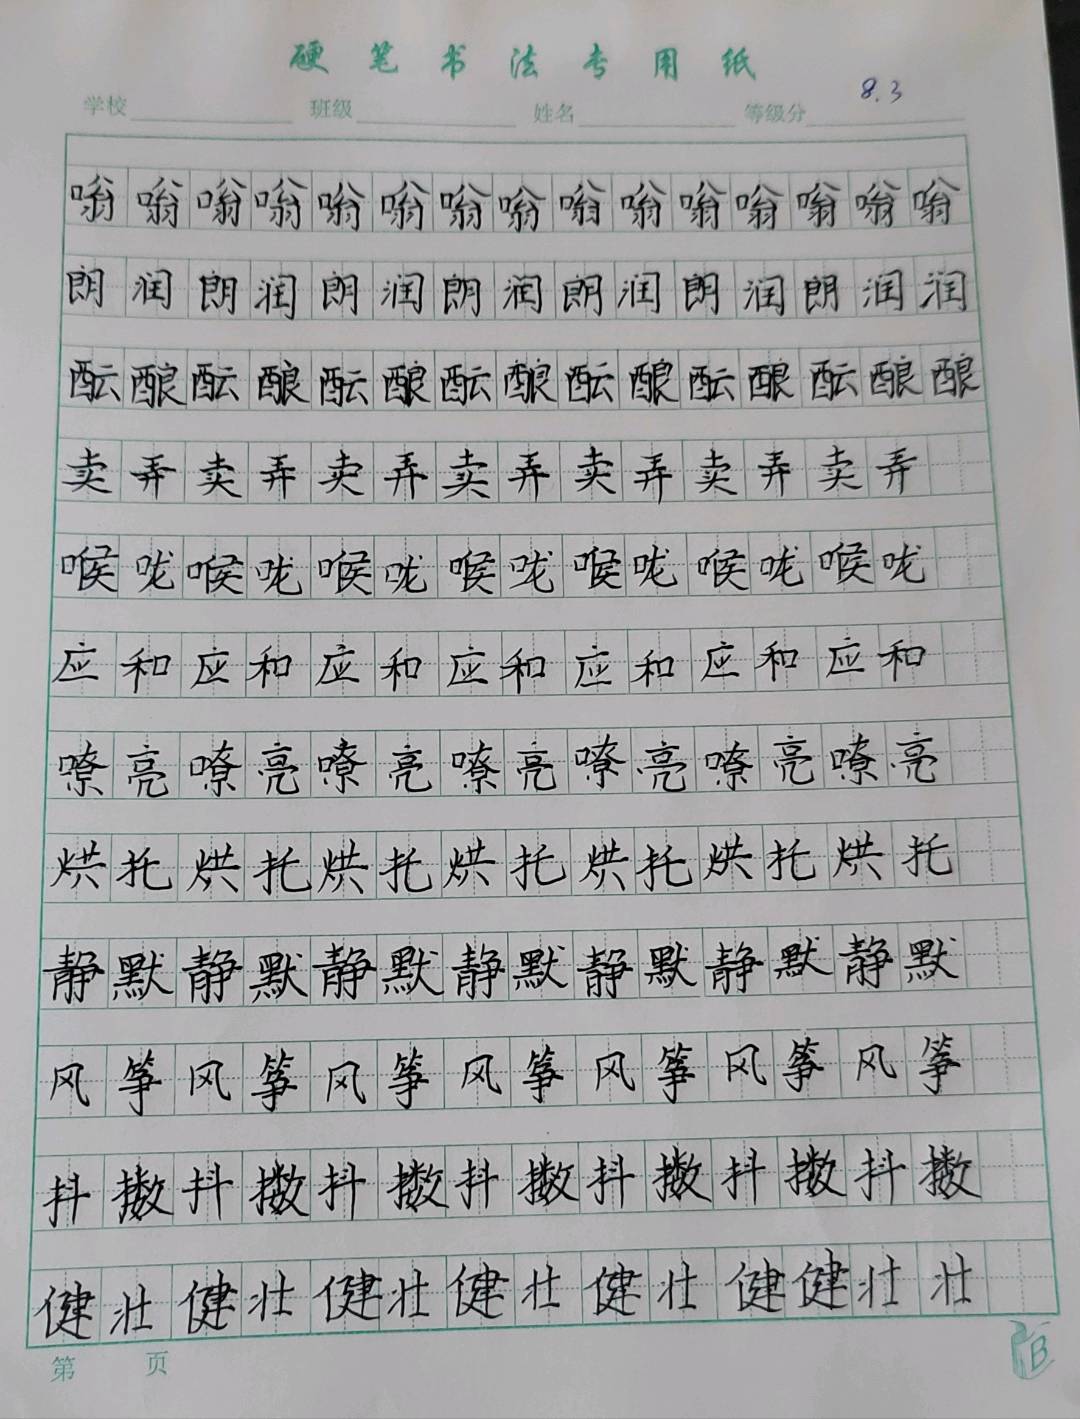 硬笔书法专用纸
学校 班级 姓名 等级分 8.3
嗡嗡嗡嗡嗡嗡嗡嗡嗡嗡嗡嗡嗡嗡嗡
朗润朗润朗润朗润朗润朗润朗润润
酝酿酝酿酝酿酝酿酝酿酝酿酝酿酿
卖弄卖弄卖弄卖弄卖弄卖弄卖弄
喉咙喉咙喉咙喉咙喉咙喉咙喉咙
应和应和应和应和应和应和应和
嘹亮嘹亮嘹亮嘹亮嘹亮嘹亮嘹亮
烘托烘托烘托烘托烘托烘托烘托
静默静默静默静默静默静默静默
风筝风筝风筝风筝风筝风筝风筝
抖擞抖擞抖擞抖擞抖擞抖擞抖擞
健壮健壮健壮健壮健壮健健壮壮
第 页
B